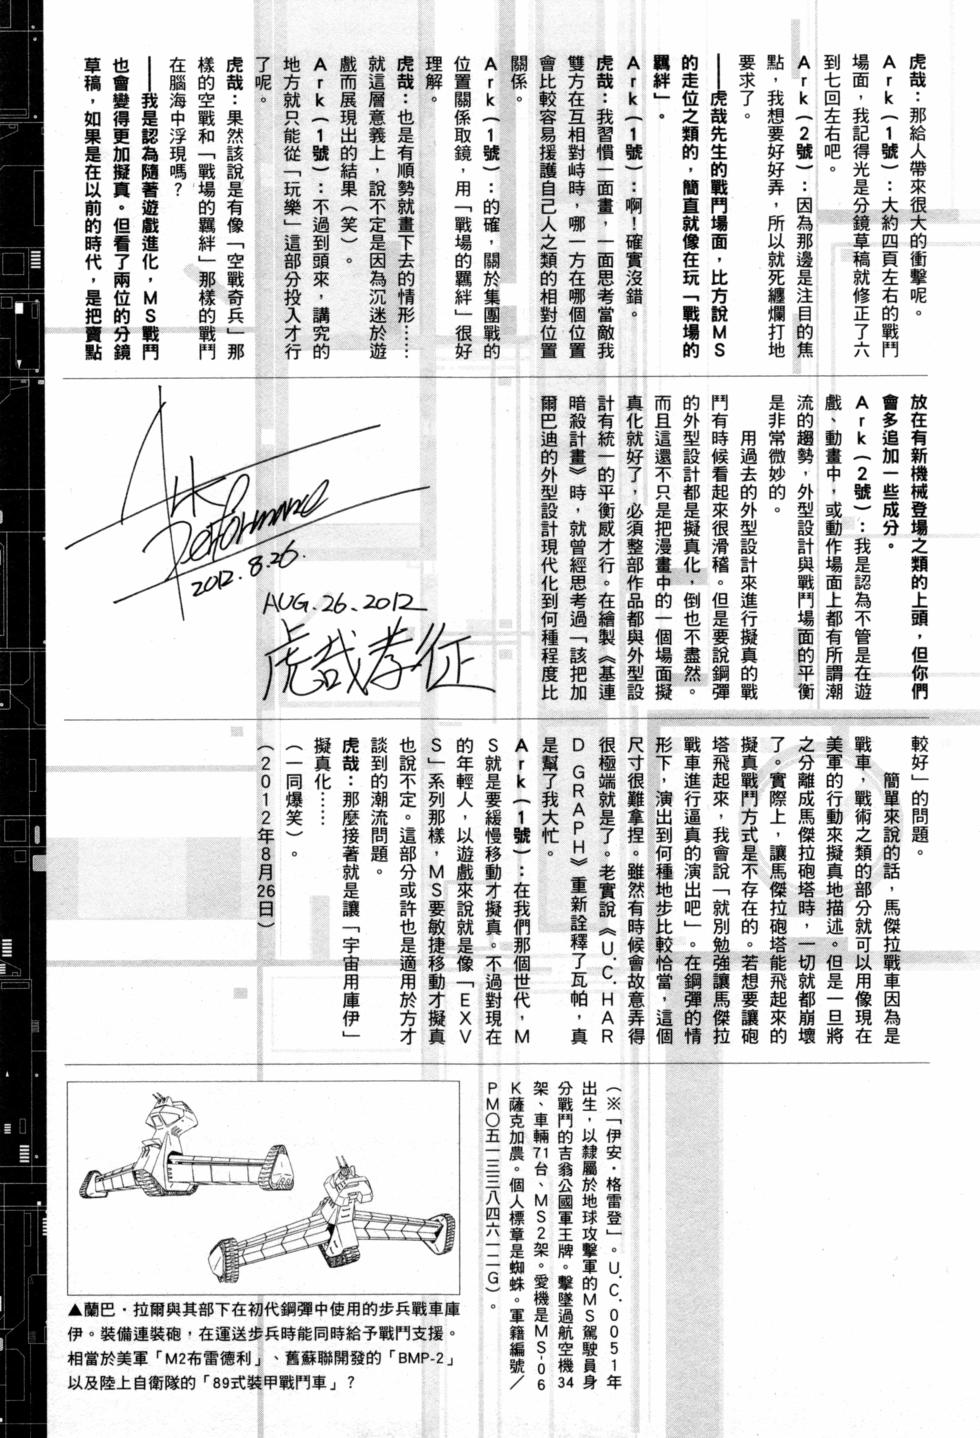 虎哉：那給人帶來很大的衝擊呢。
Ark(1號)：大約四頁左右的戰鬥
場面，我記得光是分鏡草稿就修正了六
到七回左右吧。
Ark(2號)：因為那邊是注目的焦
點，我想要好好弄，所以就死纏爛打地
要求了。
——虎哉先生的戰鬥場面，比方說MS
的走位之類的，簡直就像在玩「戰場的
羈絆」。
Ark(1號)：啊！確實沒錯。
虎哉：我習慣一面畫，一面思考當敵我
雙方在互相對峙時，哪一方在哪個位置
會比較容易援護自己人之類的相對位置
關係。
Ark(1號)：的確，關於集團戰的
位置關係取鏡，用「戰場的羈絆」很好
理解。
虎哉：也是有順勢就畫下去的情形……
就這層意義上，說不定是因為沉迷於遊
戲而展現出的結果(笑)。
Ark(1號)：不過到頭來，講究的
地方就只能從「玩樂」這部分投入才行
了呢。
虎哉：果然該說是有像「空戰奇兵」那
樣的空戰和「戰場的羈絆」那樣的戰鬥
在腦海中浮現嗎？
——我是認為隨著遊戲進化，MS戰鬥
也會變得更加擬真。但看了兩位的分鏡
草稿，如果是在以前的時代，是把賣點
放在有新機械登場之類的上頭，但你們
會多追加一些成分。
Ark(2號)：我是認為不管是在遊
戲、動畫中，或動作場面上都有所謂潮
流的趨勢，外型設計與戰鬥場面的平衡
是非常微妙的。
用過去的外型設計來進行擬真的戰
鬥有時候看起來很滑稽。但是要說鋼彈
的外型設計都是擬真化，倒也不盡然。
而且這還不只是把漫畫中的一個場面擬
真化就好了，必須整部作品都與外型設
計有統一的平衡感才行。在繪製《基連
暗殺計畫》時，就曾經思考過「該把加
爾巴迪的外型設計現代化到何種程度比
較好」的問題。
簡單來說的話，馬傑拉戰車因為是
戰車，戰術之類的部分就可以用像現在
美軍的行動來擬真地描述。但是一旦將
之分離成馬傑拉砲塔時，一切就都崩壞
了。實際上，讓馬傑拉砲塔能飛起來的
擬真戰鬥方式是不存在的。若想要讓砲
塔飛起來，我會說「就別勉強讓馬傑拉
戰車進行逼真的演出吧」。在鋼彈的情
形下，演出到何種地步比較恰當，這個
尺寸很難拿捏。雖然有時候會故意弄得
很極端就是了。老實說《U.C.HAR
D GRAPH》重新詮釋了瓦帕，真
是幫了我大忙。
Ark(1號)：在我們那個世代，M
S就是要緩慢移動才擬真。不過對現在
的年輕人，以遊戲來說就是像「EXV
S」系列那樣，MS要敏捷移動才擬真
也說不定。這部分或許也是適用於方才
談到的潮流問題。
虎哉：那麼接著就是讓「宇宙用庫伊」
擬真化……
(一同爆笑)。
(2012年8月26日)
Ark
Performance
2012.8.26
AUG.26.2012
虎哉孝征
(※「伊安·格雷登」。U.C.0051年
出生，以隸屬於地球攻擊軍的MS駕駛員身
分戰鬥的吉翁公國軍王牌。擊墜過航空機34
架、車輛71台、MS2架。愛機是MS-06
K薩克加農。個人標章是蜘蛛。軍籍編號／
PM〇五一三三八四六一二G)。
▲蘭巴·拉爾與其部下在初代鋼彈中使用的步兵戰車庫
伊。裝備連裝砲，在運送步兵時能同時給予戰鬥支援。
相當於美軍「M2布雷德利」、舊蘇聯開發的「BMP-2」
以及陸上自衛隊的「89式裝甲戰鬥車」？